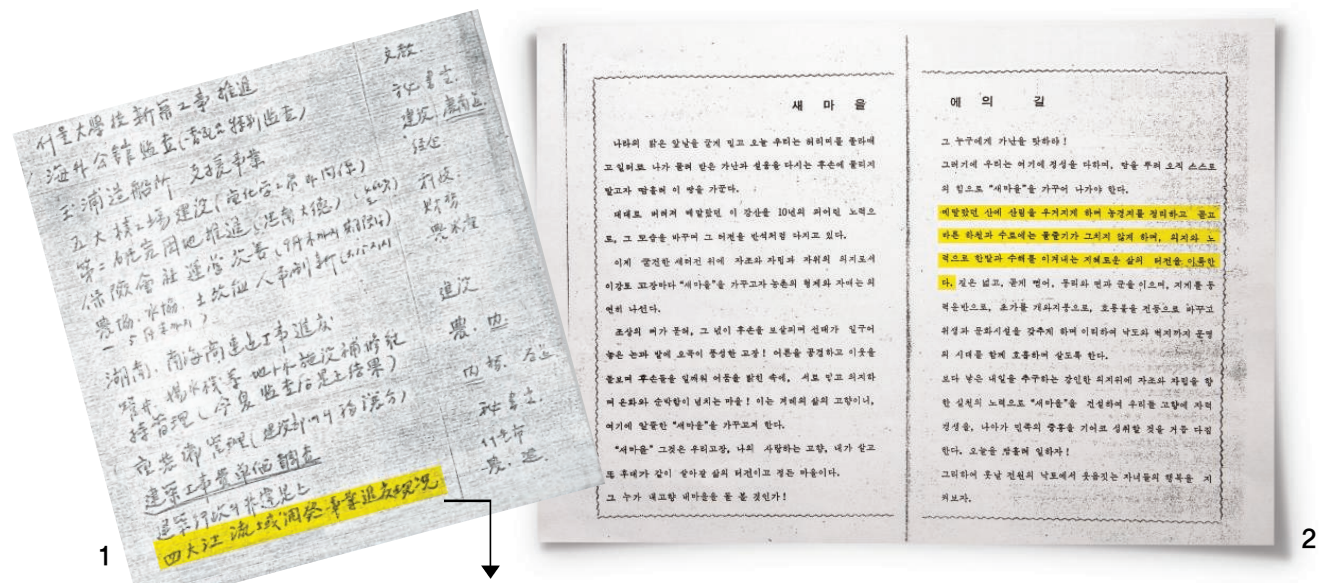 서울大學校 新築工事 推進
海外公館 監査(特別監査)
玉浦造船所 支援事業
五大核工場 建設
第二研究団地 推進(忠南大德)
保險會社 運營 改善(9月末까지
農協. 水協. 土改組 人事刷新
5月末까지)
湖南, 南海 高速道 工事 進度
管井, 揚水機等 地下水 施設 補修 維
持管理(今夏 監査 結果)
管理(建設部
建築工事費 單価 調査
建築行政의 非違是正
四大江 流域 開発 事業 進度 現況
文敎.
秘書室.
建設,
農水産
建設
農. 内
内務.
秘書室.
서울市
農. 建.
1
새 마 을
나라의 밝은 앞날을 굳게 믿고 오늘 우리는 허리띠를 졸라매
고 일터로 나가 물려 받은 가난과 설움을 다시는 후손에 물리지
말고자 땀흘려 이 땅을 가꾼다.
대대로 버려져 메말랐던 이 강산을 10년의 피어린 노력으
로, 그 모습을 바꾸며 그 터전을 반석처럼 다지고 있다.
이제 굳건한 새터전 위에 자조와 자립과 자위의 의지로서
이강토 고장마다 "새마을"을 가꾸고자 농촌의 형제와 자매는 의
연히 나선다.
조상의 뼈가 묻혀, 그 넋이 후손을 보살피며 선대가 일구어
놓은 논과 밭에 오곡이 풍성한 고장! 어른을 공경하고 이웃을
돌보며 후손들을 일깨워 어둠을 밝힌 속에, 서로 믿고 의지하
며 온화와 순박함이 넘치는 마을! 이는 겨레의 삶의 고향이니,
여기에 알뜰한 "새마을"을 가꾸고저 한다.
"새마을" 그것은 우리고장, 나의 사랑하는 고향, 내가 살고
또 후대가 같이 살아갈 삶의 터전이고 정든 마을이다.
그 누가 내고향 내마을을 돌 볼 것인가!
에 의 길
그 누구에게 가난을 탓하랴!
그러기에 우리는 여기에 정성을 다하며, 땀을 뿌려 오직 스스로
의 힘으로 "새마을"을 가꾸어 나가야 한다.
메말랐던 산에 산림을 우거지게 하며 농경지를 정리하고 골고
마른 하천과 수로에는 물줄기가 그치지 않게 하며, 의지와 노
력으로 한발과 수해를 이겨내는 지혜로운 삶의 터전을 이룩한
다. 길은 넓고, 곧게 뻗어, 동리와 면과 군을 이으며, 지게를 동
력운반으로, 초가를 개와지붕으로, 호롱불을 전등으로 바꾸고
위생과 문화시설을 갖추게 하며 이리하여 낙도와 벽지까지 문명
의 시대를 함께 호흡하며 살도록 한다.
보다 낳은 내일을 추구하는 강인한 의지위에 자조와 자립을 향
한 실천의 노력으로 "새마을"을 건설하여 우리들 고향에 자력
갱생을, 나아가 민족의 중흥을 기어코 성취할 것을 거듭 다짐
한다. 오늘을 땀흘려 일하자!
그리하여 훗날 전원의 낙토에서 웃음짓는 자녀들의 행복을 지
켜보자.
2